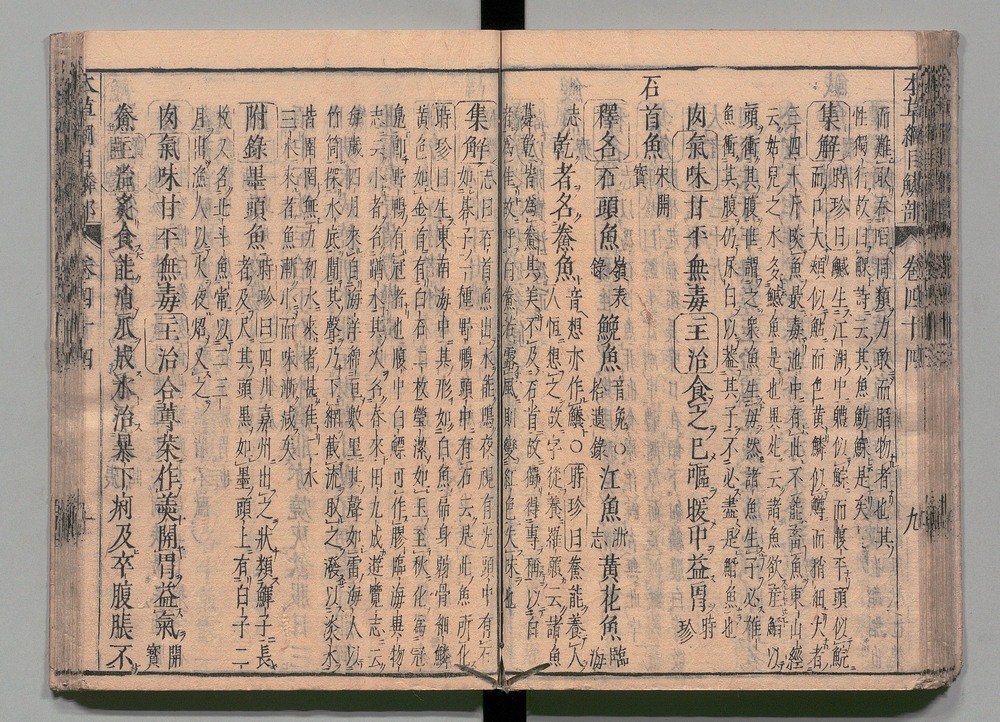 本草綱目鱗部 卷四十四 九
而難取吞啗同類力敢而䐄物者也其
性獨行故曰鰥詩云其魚魴鰥是矣
集解時珍曰鱤生江湖中體似鯮而腹平頭似鯇
而口大頰似鮎而色黃鱗似鱒而稍細大者
三四十斤啖魚最毒池中有此不能畜魚東山經
云姑兒之水多鱤魚是也異苑云諸魚欲産鱤以
頭衝其腹世謂之衆魚生母然諸魚生子必雄
魚衝其腹仍尿白以蓋其子不必盡是鱤魚也
肉氣味甘平無毒主治食之已嘔暖中益胃時珍
石首魚宋開寶
釋名石頭魚嶺表錄鮸魚音免○拾遺錄江魚浙志黃花魚臨海
志乾者名鮝魚音想亦作鱶○時珍曰鮝能養人
人恒想之故字從養羅願云諸魚
薨乾皆爲鮝其美不及石首故獨得專稱以白
者爲佳故呼白鮝若露風則變紅色失味也
集解志曰石首魚出水能鳴夜視有光頭中有石
如棊子一種野鴨頭中有石云是此魚所化
時珍曰生東南海中其形如白魚扁身弱骨細鱗
黃色如金首有白石二枚瑩潔如玉至秋化爲冠
鳬即野鴨有冠者也腹中白鰾可作膠臨海異物
志云小者名踏水其次名春來田九成遊覽志云
每歲四月來自海洋綿亘數里其聲如雷海人以
竹筒探水底聞其聲乃下網截流取之潑以淡水
皆圉圉無力初水來者甚佳二水
三水來者魚漸小而味漸減矣
附錄墨頭魚時珍曰四川嘉州出之狀類鯶子長
者及尺其頭黑如墨頭上有白子二
枚又名北斗魚常以二三
月出漁人以火夜炤叉之
肉氣味甘平無毒主治合蓴菜作羹開胃益氣開寶
鮝主治炙食能消瓜成水治暴下痢及卒腹脹不
本草綱目鱗部 卷四十四